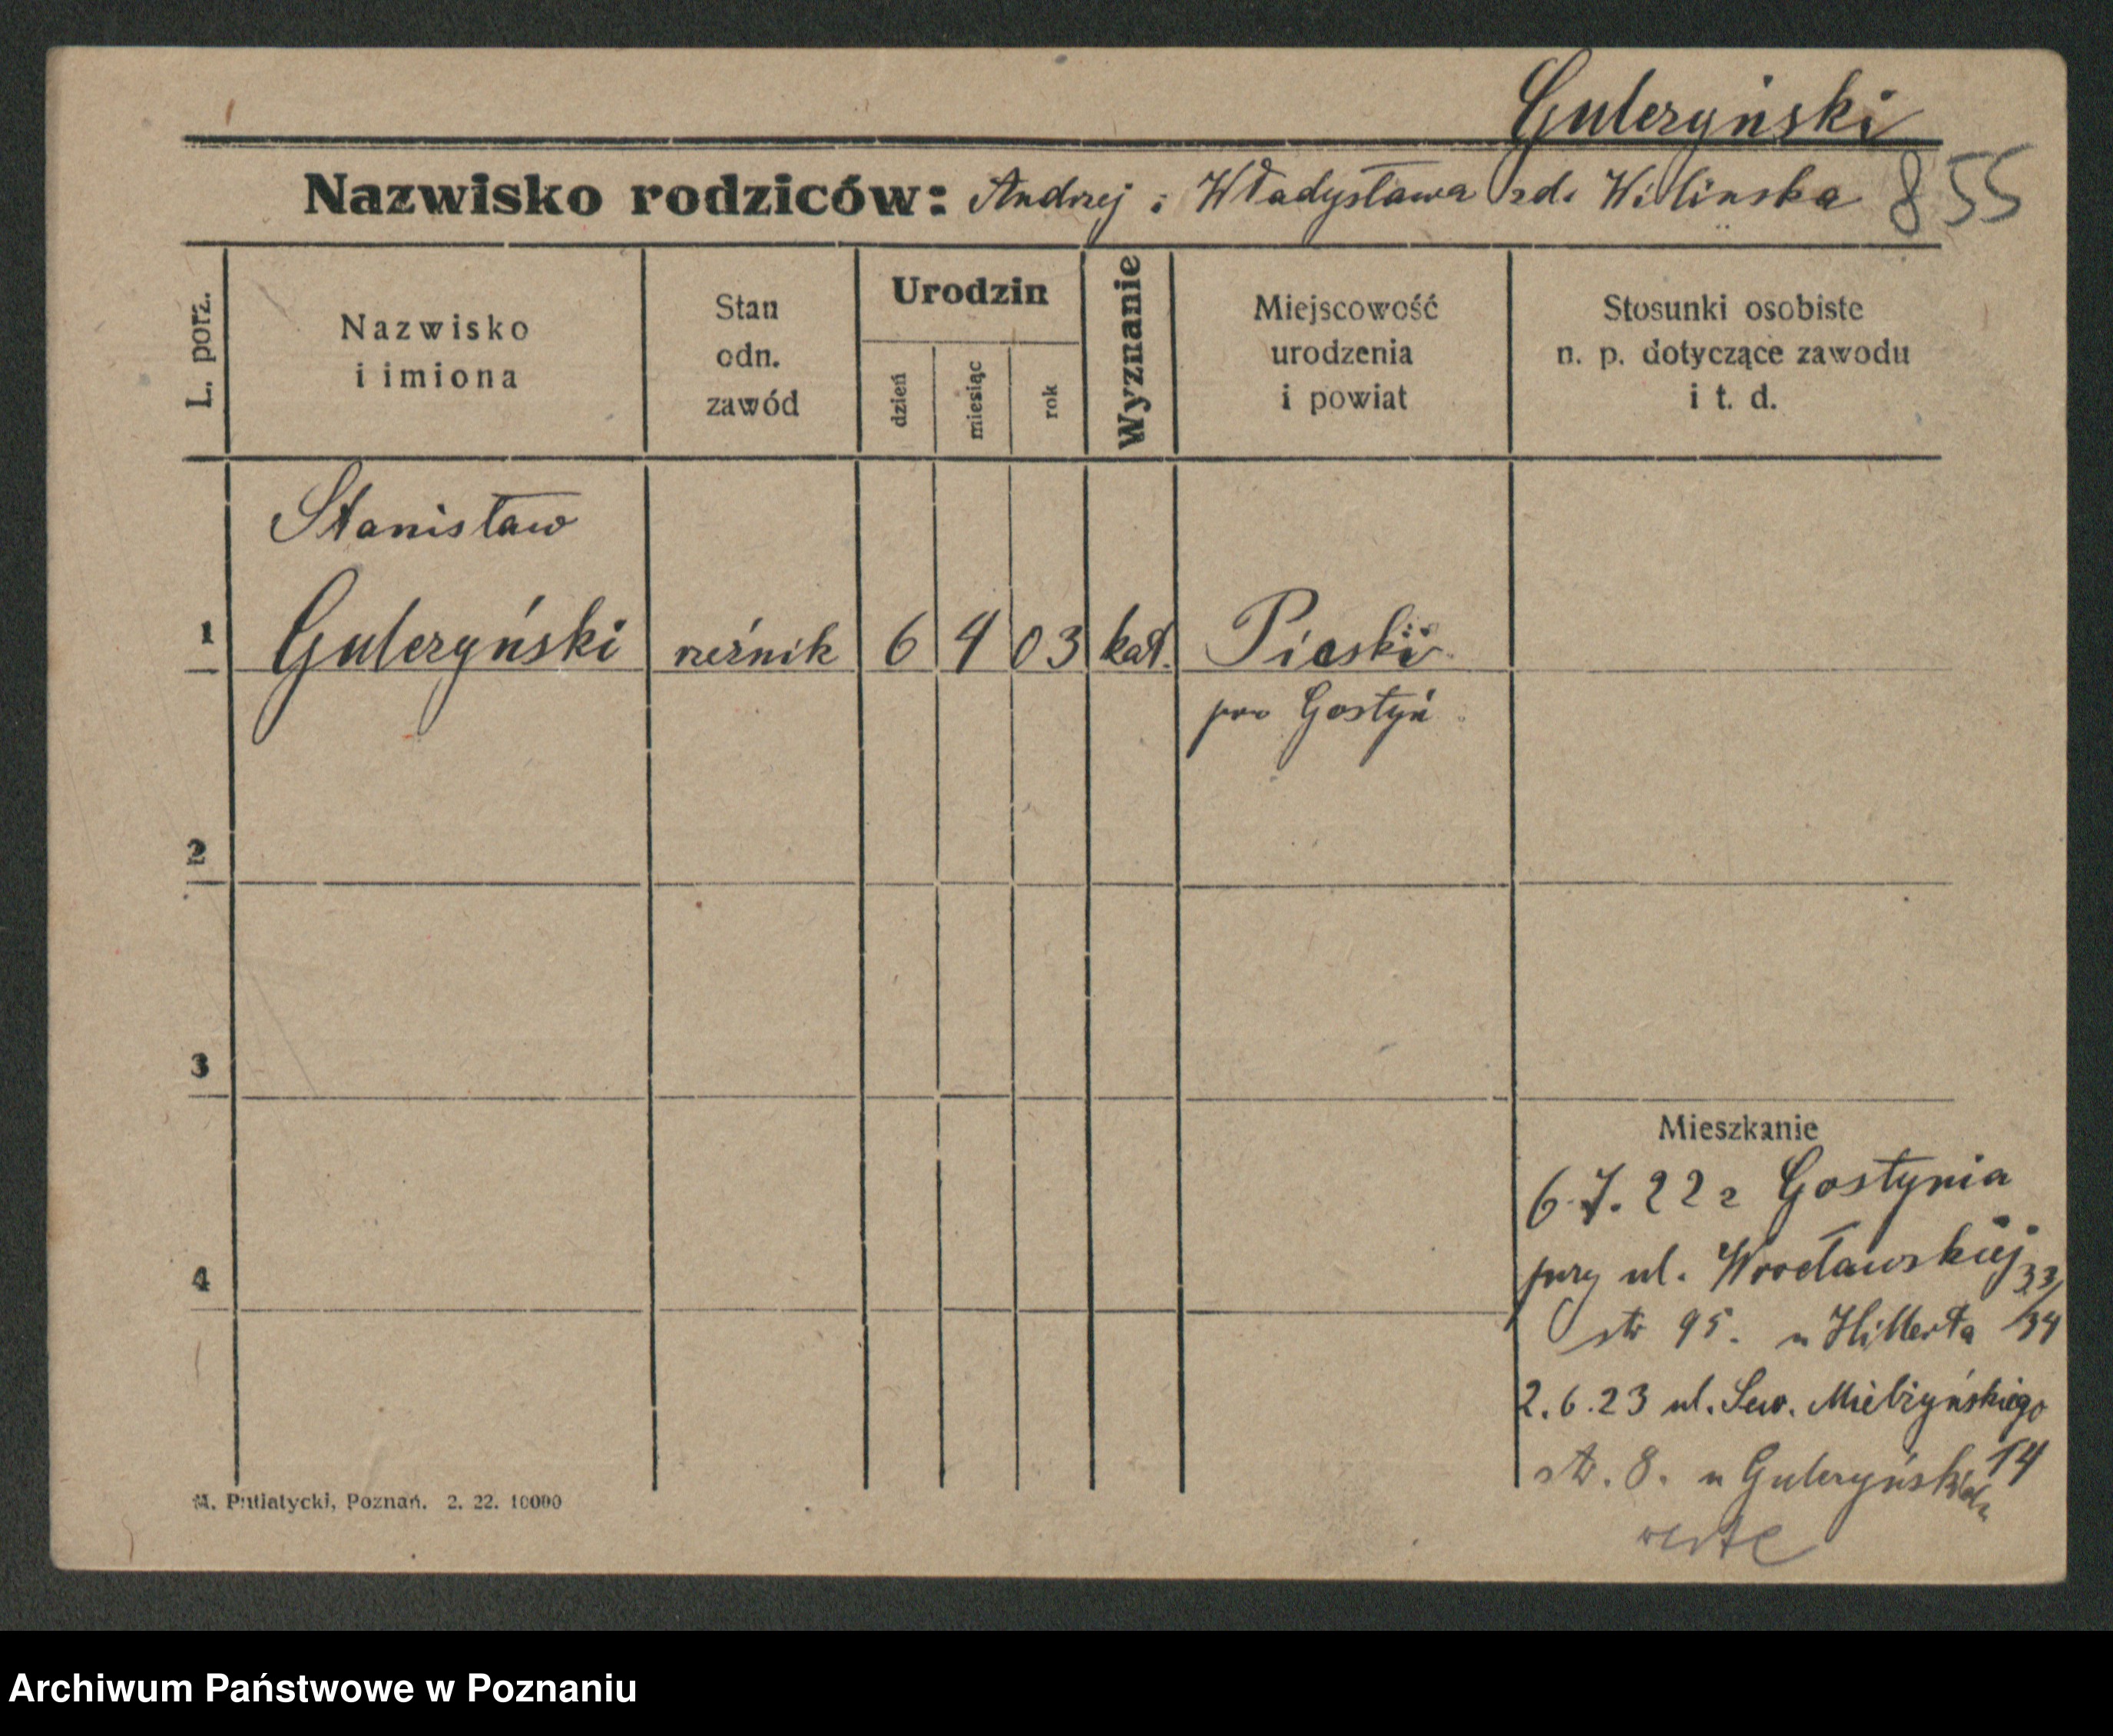 Gulczyński
Nazwisko rodziców: Andrzej i Władysława zd. Wilinska 855
L. porz.
Nazwisko
i imiona
Stan
odn.
zawód
Urodzin
dzień
miesiąc
rok
Wyznanie
Miejscowość
urodzenia
i powiat
Stosunki osobiste
n. p. dotyczące zawodu
i t. d.
Stanisław
1 Gulczyński rzeźnik 6 4 03 kat. Piaski
pow Gostyń
2
3
Mieszkanie
6.7.22 z Gostynia
4
przy ul. Wrocławskiej 33/34
str 95. u Hillerta
2.6.23 ul. Sew. Mielżyńskiego
str. 8. u Gulczyńskich 14
M. Putiatycki, Poznań. 2. 22. 10000
verte
Archiwum Państwowe w Poznaniu